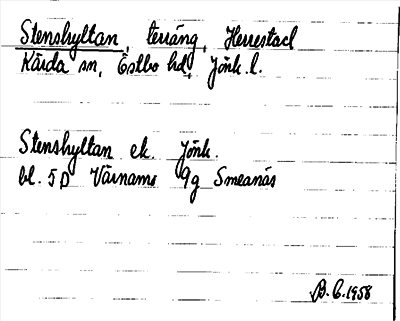 Stenshyltan, terräng, Herrestad
Kärda sn, Östbo hd, Jönk. l.
Stenshyltan ek. Jönk.
bl. 5D Värnamo 9g Smeanäs
B.C. 1958